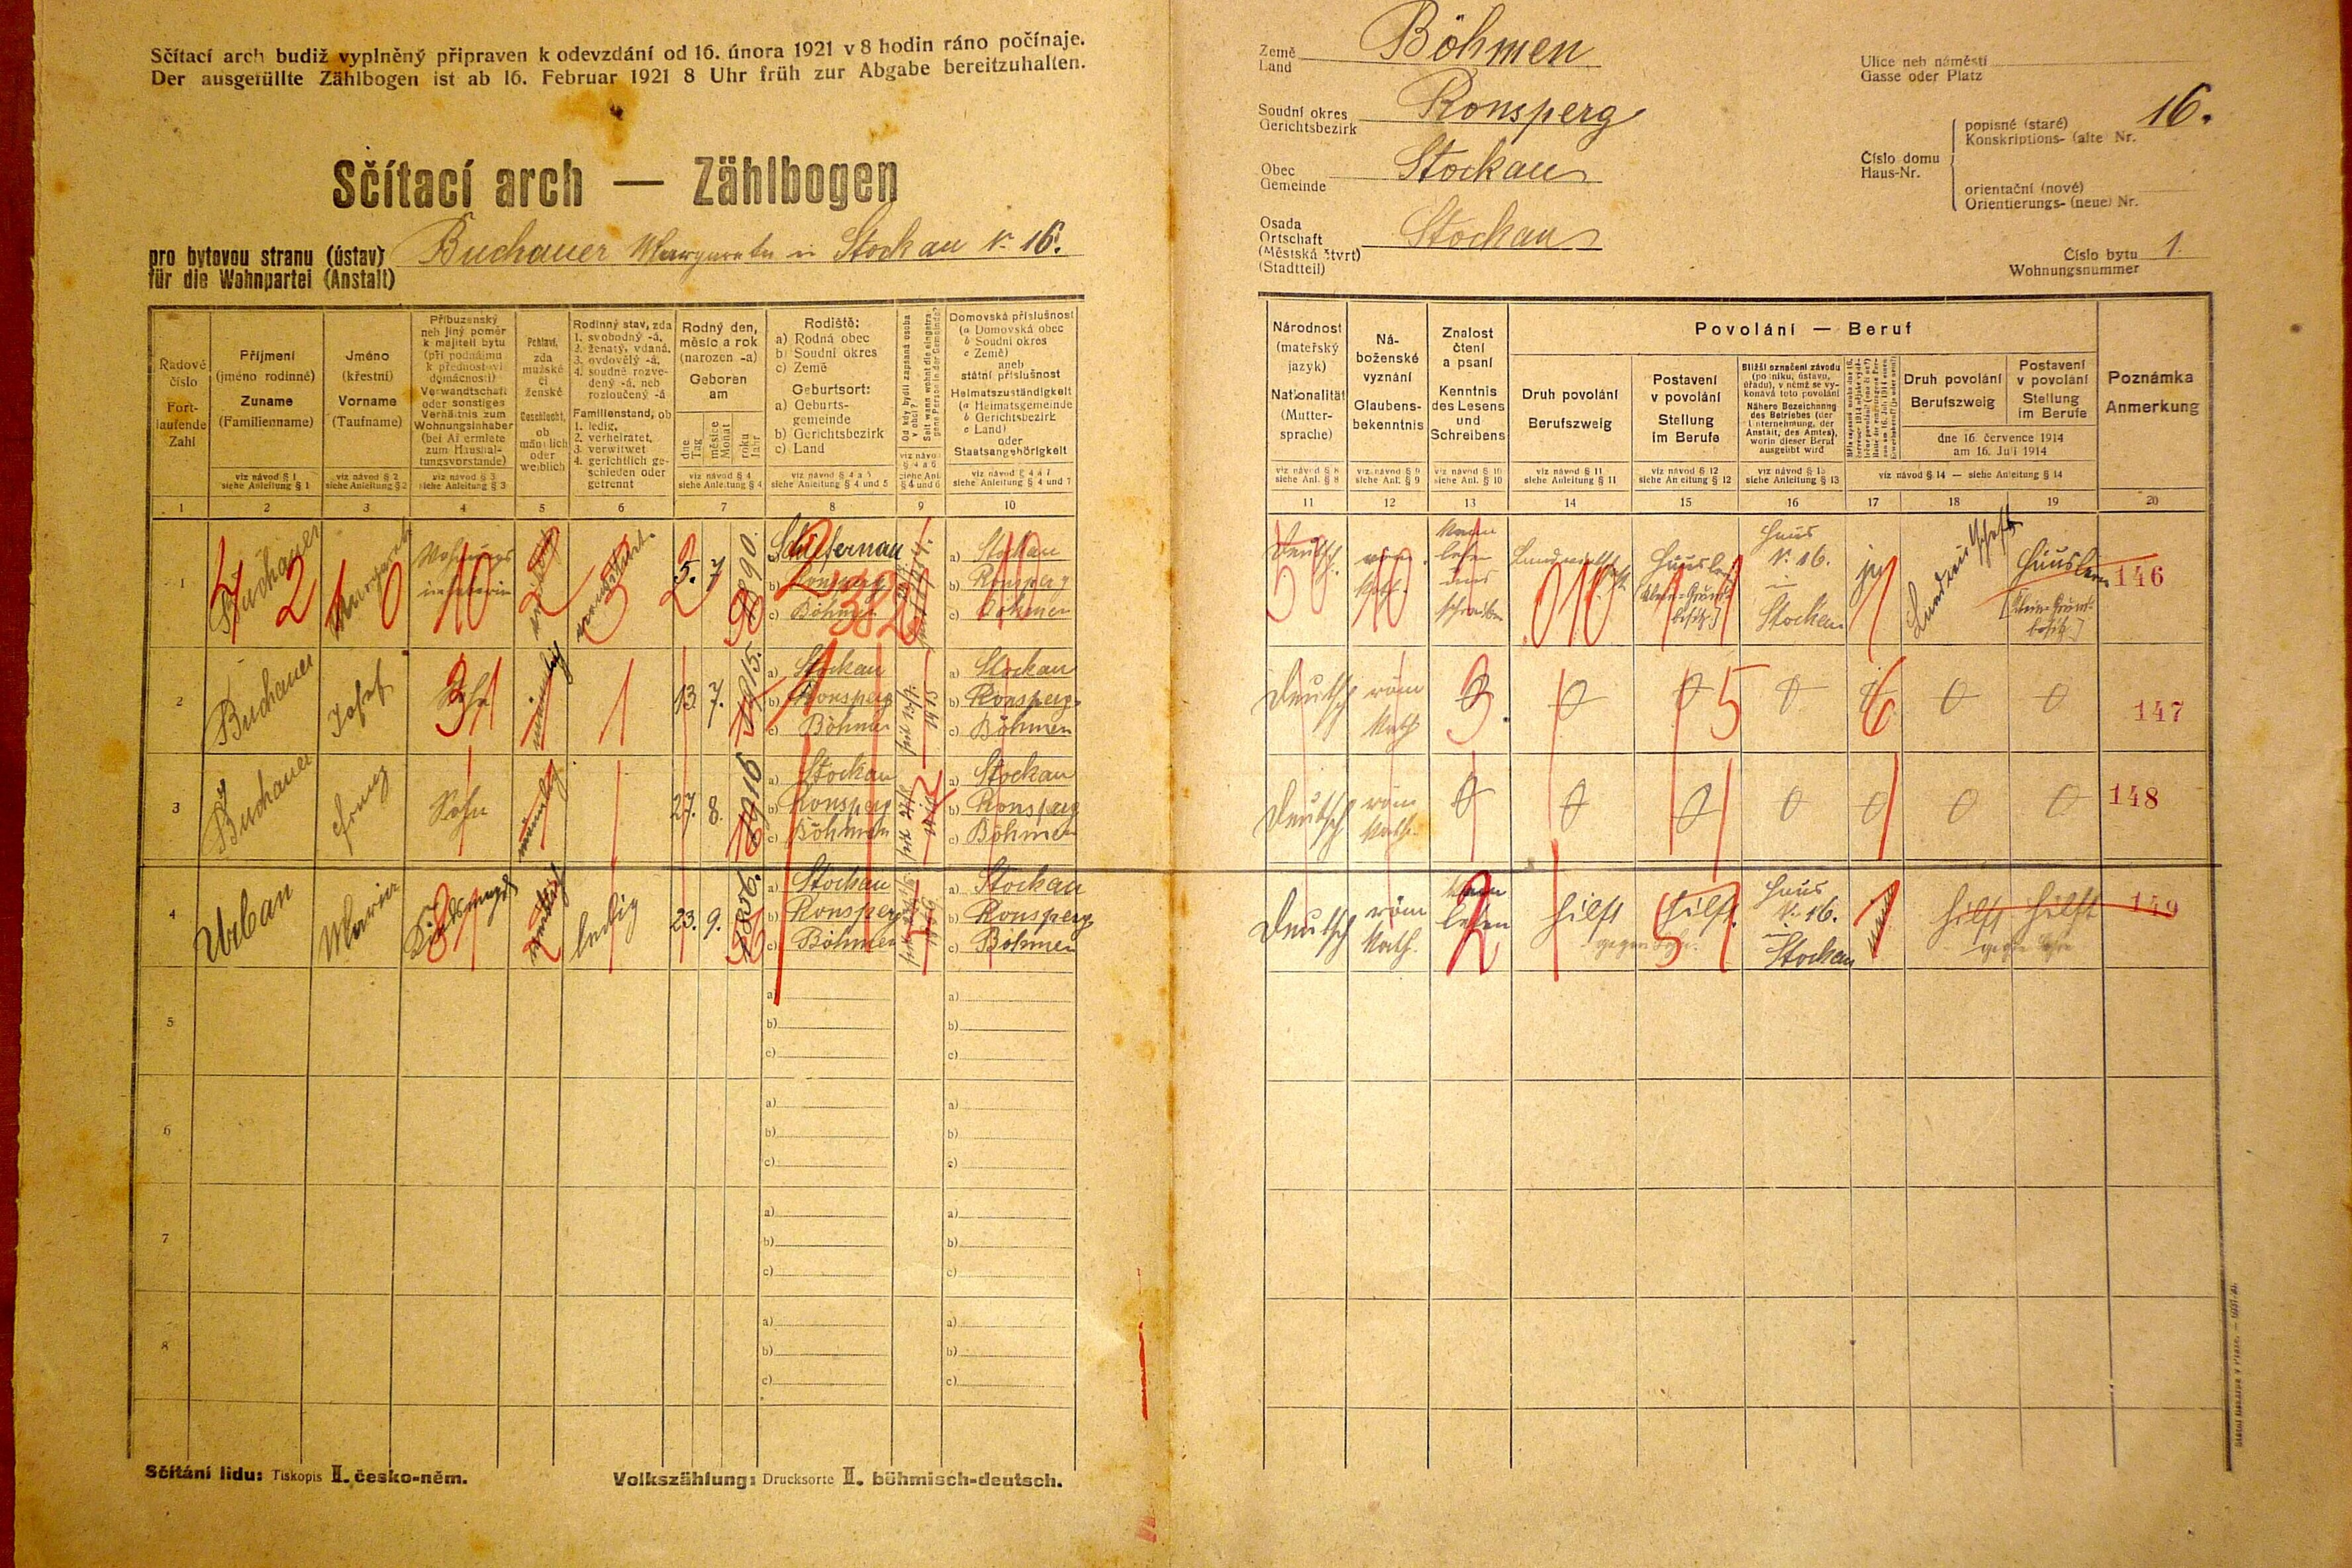 Sčítací arch budiž vyplněný připraven k odevzdání od 16. února 1921 v 8 hodin ráno počínaje.
Der ausgefüllte Zählbogen ist ab 16. Februar 1921 8 Uhr früh zur Abgabe bereitzuhalten.
Sčítací arch — Zählbogen
pro bytovou stranu (ústav)
für die Wohnpartei (Anstalt)
Buchauer Margareta in Stockau Nr. 16.
Řadové číslo
Fortlaufende Zahl
1
Příjmení
(jméno rodinné)
Zuname
(Familienname)
viz návod § 1
siehe Anleitung § 1
2
Jméno
(křestní)
Vorname
(Taufname)
viz návod § 2
siehe Anleitung § 2
3
Příbuzenský
neb jiný poměr
k majiteli bytu
(při podnájmu
k přednostovi
domácnosti)
Verwandtschaft
oder sonstiges
Verhältnis zum
Wohnungsinhaber
(bei Afermiete
zum Haushal-
tungsvorstande)
viz návod § 3
siehe Anleitung § 3
4
Pohlaví,
zda
mužské
či
ženské
Geschlecht,
ob
männlich
oder
weiblich
5
Rodinný stav, zda
1. svobodný -á,
2. ženatý, vdaná,
3. ovdovělý -á,
4. soudně rozve-
dený -á, neb
rozloučený -á
Familienstand, ob
1. ledig,
2. verheiratet,
3. verwitwet
4. gerichtlich ge-
schieden oder
getrennt
6
Rodný den,
měsíc a rok
(narozen -a)
Geboren
am
dne
Tag
měsíce
Monat
roku
Jahr
viz návod § 4
siehe Anleitung § 4
7
Rodiště:
a) Rodná obec
b) Soudní okres
c) Země
Geburtsort:
a) Geburts-
gemeinde
b) Gerichtsbezirk
c) Land
viz návod § 4 a 5
siehe Anleitung § 4 und 5
8
Od kdy bydlí zapsaná osoba
v obci?
Seit wann wohnt die eingetra-
gene Person in der Gemeinde?
viz návod
§ 4 a 6
siehe Anl.
§ 4 und 6
9
Domovská příslušnost
(a Domovská obec
b Soudní okres
c Země)
aneb
státní příslušnost
Heimatszuständigkeit
(a Heimatsgemeinde
b Gerichtsbezirk
c Land)
oder
Staatsangehörigkeit
viz návod § 4 a 7
siehe Anleitung § 4 und 7
10
1 Buchauer Margareta Wohnungsinhaberin weiblich verwitwet. 5. 7 1890.
b) Ronsperg
c) Böhmen
a) Stockau
b) Ronsperg
c) Böhmen
2 Buchauer Josef Sohn männlich 13. 7. 1915.
a) Stockau
b) Ronsperg
c) Böhmen
a) Stockau
b) Ronsperg
c) Böhmen
3 Buchauer Franz Sohn männlich 27. 8. 1916
a) Stockau
b) Ronsperg
c) Böhmen
a) Stockau
b) Ronsperg
c) Böhmen
4 Urban Maria weiblich ledig 23. 9. 1856.
a) Stockau
b) Ronsperg
c) Böhmen
a) Stockau
b) Ronsperg
c) Böhmen
5
a) a)
b) b)
c) c)
6
a) a)
b) b)
c) c)
7
a) a)
b) b)
c) c)
8
a) a)
b) b)
c) c)
Sčítání lidu: Tiskopis II. česko-něm.
Volkszählung: Drucksorte II. böhmisch-deutsch.
Země
Land
Böhmen
Soudní okres
Gerichtsbezirk
Ronsperg
Obec
Gemeinde
Stockau
Osada
Ortschaft
(Městská čtvrt)
(Stadtteil)
Stockau
Ulice neb náměstí
Gasse oder Platz
Číslo domu
Haus-Nr.
popisné (staré)
Konskriptions- (alte) Nr.
16.
orientační (nové)
Orientierungs- (neue) Nr.
Číslo bytu
Wohnungsnummer
1.
Národnost
(mateřský
jazyk)
Nationalität
(Mutter-
sprache)
viz návod § 8
siehe Anl. § 8
11
Ná-
boženské
vyznání
Glaubens-
bekenntnis
viz návod § 9
siehe Anl. § 9
12
Znalost
čtení
a psaní
Kenntnis
des Lesens
und
Schreibens
viz návod § 10
siehe Anl. § 10
13
Povolání — Beruf
Druh povolání
Berufszweig
viz návod § 11
siehe Anleitung § 11
14
Postavení
v povolání
Stellung
im Berufe
viz návod § 12
siehe Anleitung § 12
15
Bližší označení závodu
(podniku, ústavu,
úřadu), v němž se vy-
konává toto povolání
Nähere Bezeichnung
des Betriebes (der
Unternehmung, der
Anstalt, des Amtes),
worin dieser Beruf
ausgeübt wird
viz návod § 13
siehe Anleitung § 13
16
17
Druh povolání
Berufszweig
Postavení
v povolání
Stellung
im Berufe
dne 16. července 1914
am 16. Juli 1914
viz návod § 14 — siehe Anleitung § 14
18
19
Poznámka
Anmerkung
20
Deutsch. röm. Kath. Kann lesen und schreiben Landwirtschaft Häusler Haus Nr. 16. in Stockau ja Landwirtschaft 146
Deutsch röm Kath 0 0 0 0 0 0 147
Deutsch röm Kath. 0 0 0 0 0 0 0 148
Deutsch röm Kath. Kann lesen hilft hilft. Haus Nr. 16. in Stockau hilft hilft 149